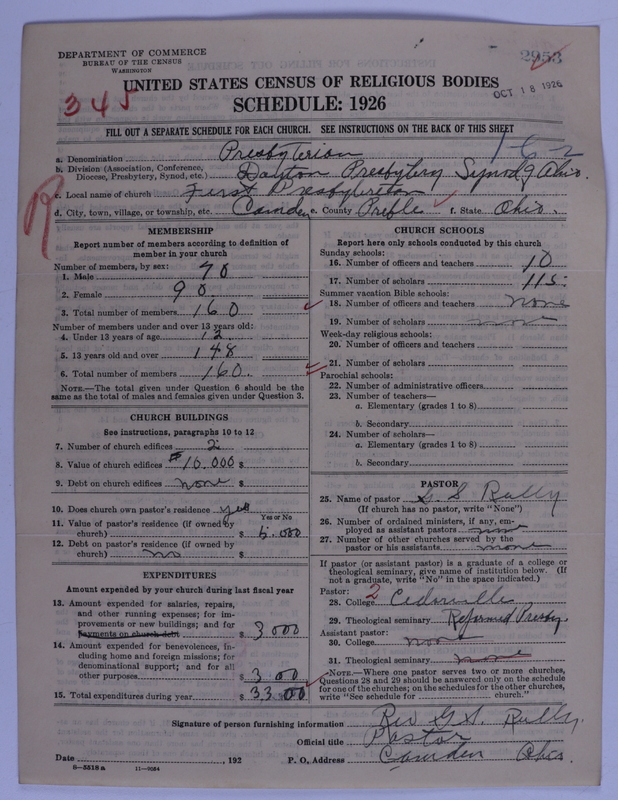 DEPARTMENT OF COMMERCE
BUREAU OF THE CENSUS
WASHINGTON
2953
OCT 18 1926
345
UNITED STATES CENSUS OF RELIGIOUS BODIES
SCHEDULE: 1926
FILL OUT A SEPARATE SCHEDULE FOR EACH CHURCH. SEE INSTRUCTIONS ON THE BACK OF THIS SHEET
1-6-2
a. Denomination Presbyterian
b. Division (Association, Conference, Diocese, Presbytery, Synod, etc.) Dayton Presbytery Synod of Ohio.
c. Local name of church First Presbyterian
d. City, town, village, or township, etc. Camden e. County Preble f. State Ohio.
R
MEMBERSHIP
Report number of members according to definition of
member in your church
Number of members, by sex:
1. Male 70
2. Female 90
3. Total number of members 160
Number of members under and over 13 years old:
4. Under 13 years of age 12
5. 13 years old and over 148
6. Total number of members 160.
NOTE.—The total given under Question 6 should be the
same as the total of males and females given under Question 3.
CHURCH BUILDINGS
See instructions, paragraphs 10 to 12
7. Number of church edifices 2
8. Value of church edifices #10.000 $
9. Debt on church edifices none $
10. Does church own pastor's residence yes
Yes or No
11. Value of pastor's residence (if owned by
church) $ 5.000
12. Debt on pastor's residence (if owned by
church) no $
EXPENDITURES
Amount expended by your church during last fiscal year
13. Amount expended for salaries, repairs,
and other running expenses; for im-
provements or new buildings; and for
payments on church debt $ 3000
14. Amount expended for benevolences, in-
cluding home and foreign missions; for
denominational support; and for all
other purposes $ 300
15. Total expenditures during year $ 3300
CHURCH SCHOOLS
Report here only schools conducted by this church
Sunday schools:
16. Number of officers and teachers 10
17. Number of scholars 115
Summer vacation Bible schools:
18. Number of officers and teachers none
19. Number of scholars none
Week-day religious schools:
20. Number of officers and teachers
21. Number of scholars
Parochial schools:
22. Number of administrative officers
23. Number of teachers—
a. Elementary (grades 1 to 8)
b. Secondary
24. Number of scholars—
a. Elementary (grades 1 to 8)
b. Secondary
PASTOR
25. Name of pastor G. S. Rully
(If church has no pastor, write "None")
26. Number of ordained ministers, if any, em-
ployed as assistant pastors none
27. Number of other churches served by the
pastor or his assistants none
If pastor (or assistant pastor) is a graduate of a college or
theological seminary, give name of institution below. (If
not a graduate, write "No" in the space indicated.)
Pastor: 2
28. College Cedarville
29. Theological seminary Reformed Presby.
Assistant pastor:
30. College none
31. Theological seminary none
NOTE.—Where one pastor serves two or more churches,
Questions 28 and 29 should be answered only on the schedule
for one of the churches; on the schedules for the other churches,
write "See schedule for church."
Signature of person furnishing information Rev G. S. Rully.
Official title Pastor
Date , 192 P. O. Address Camden Ohio.
8-5518 a 11-9034